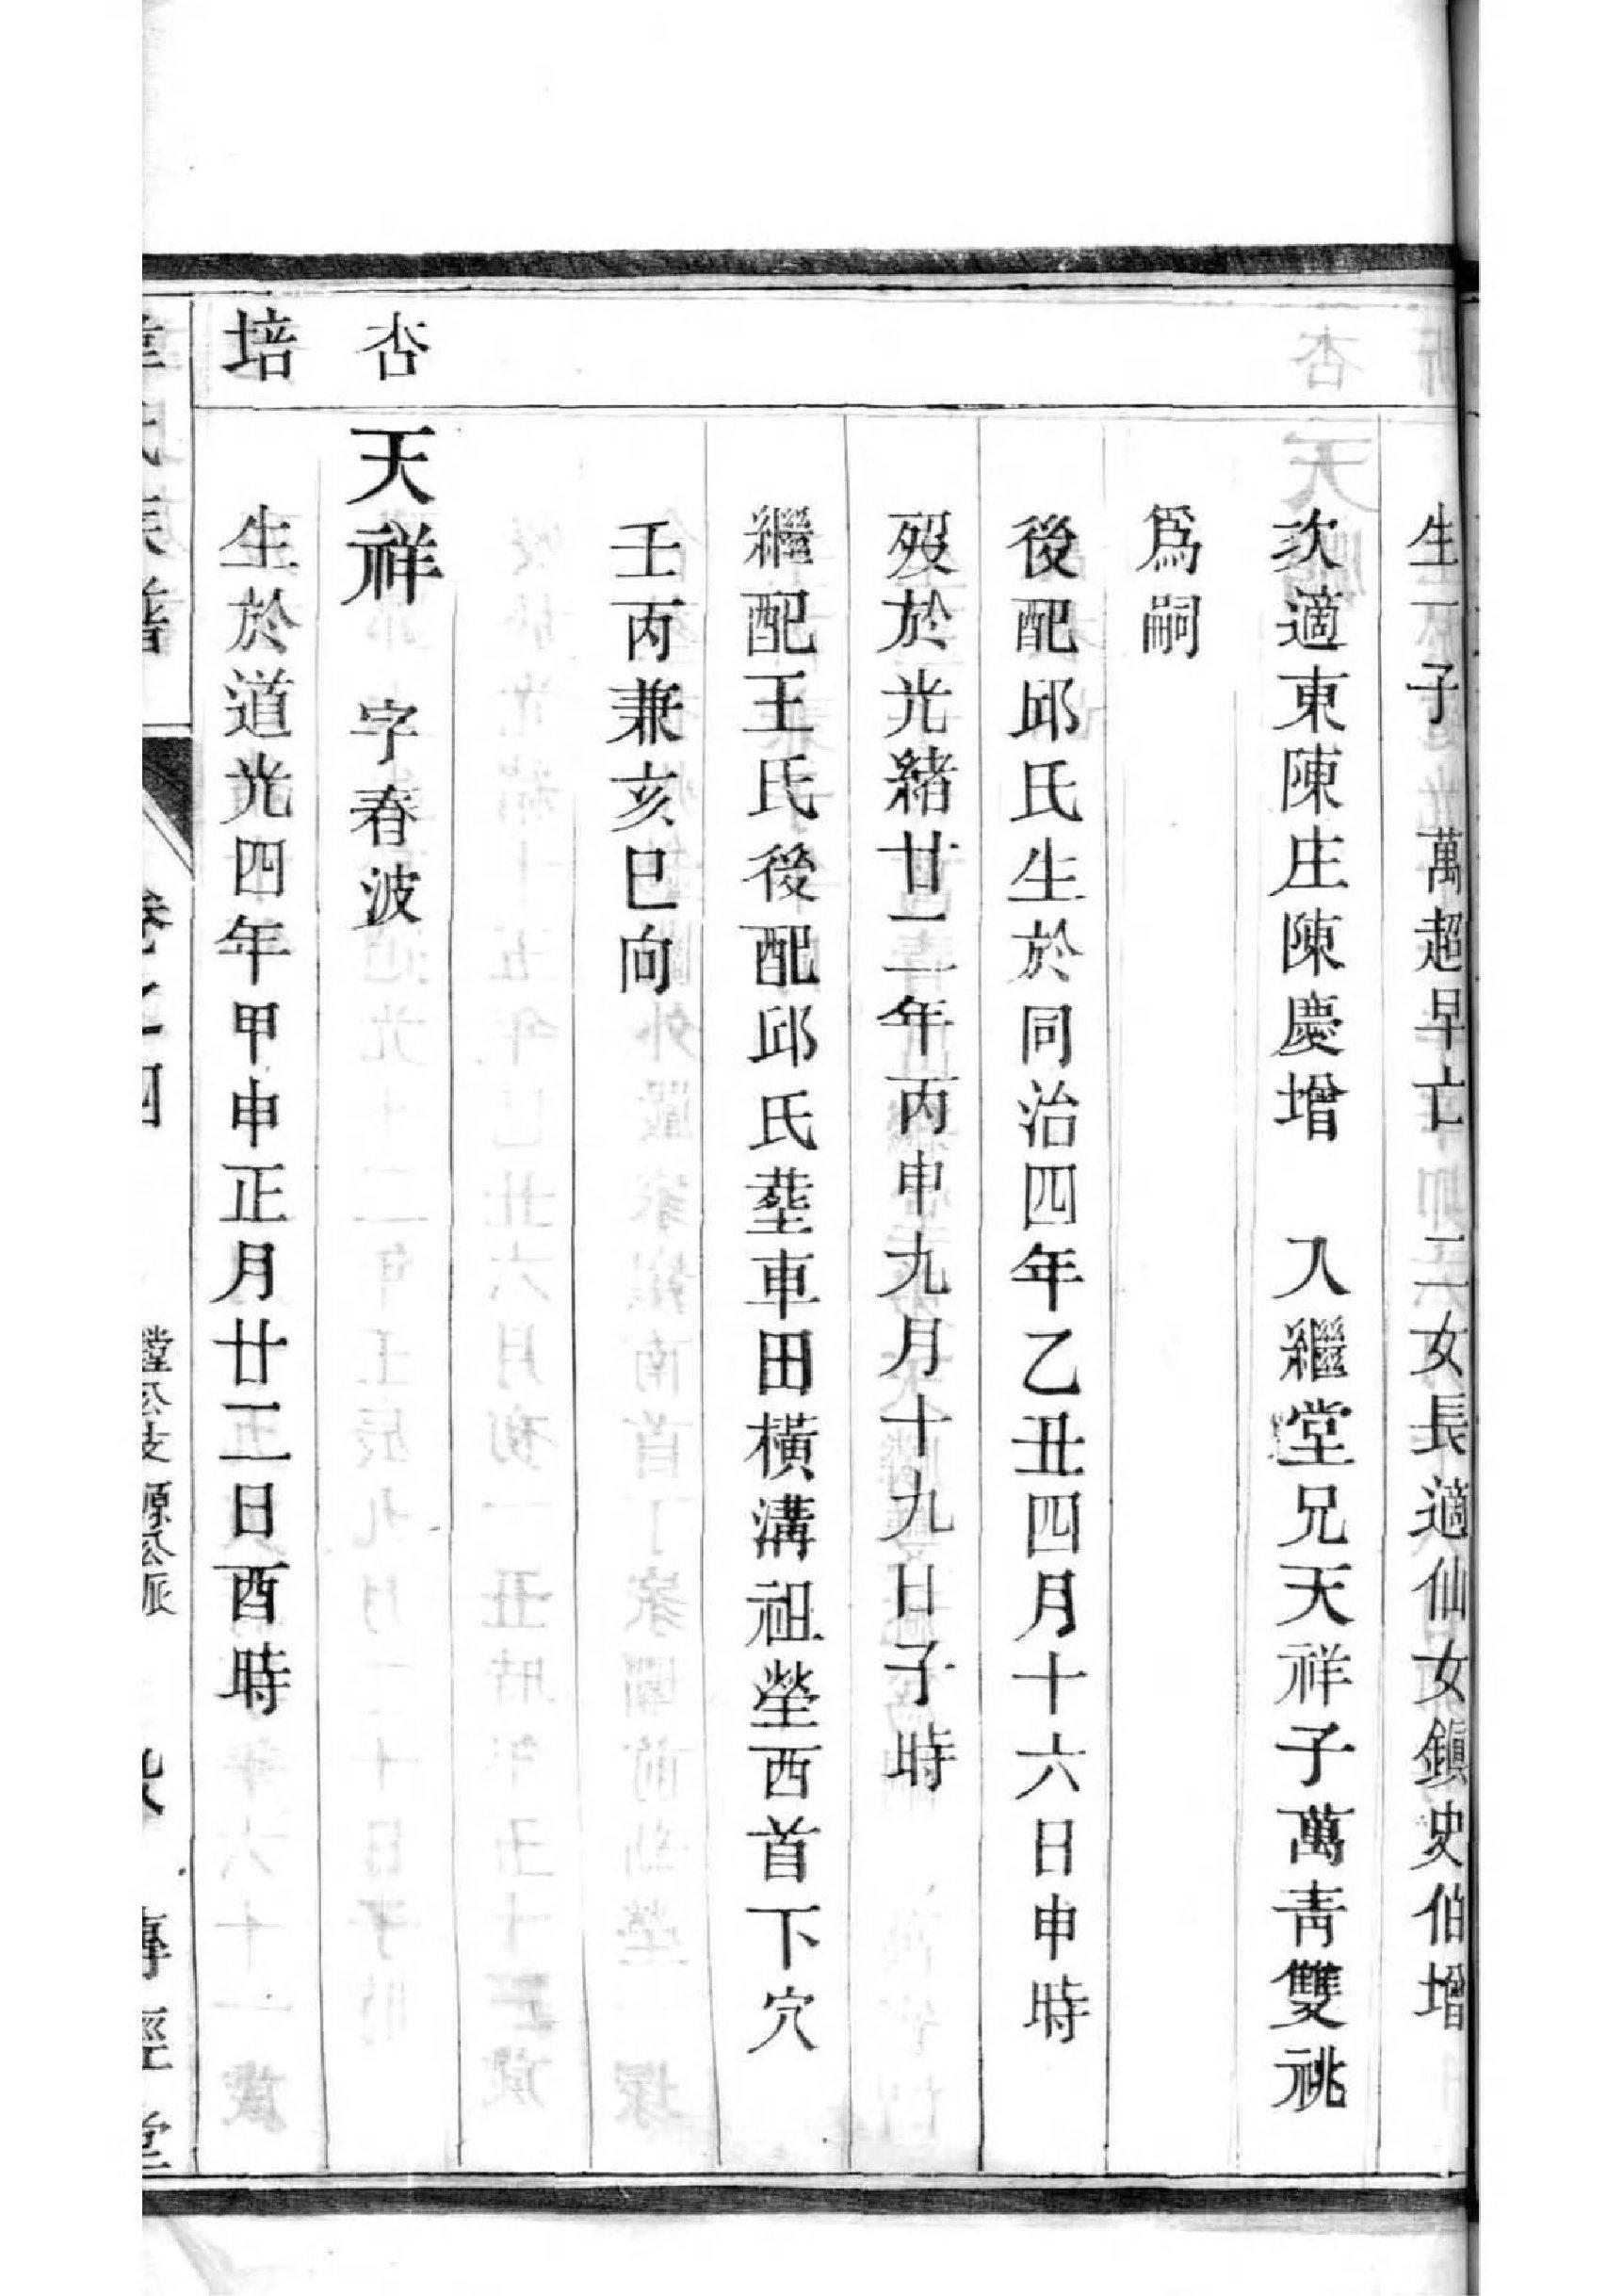 生一子 萬超早亡 二女長適仙女鎭史伯增
次適東陳庄陳慶增 入繼堂兄天祥子萬青雙祧
爲嗣
後配邱氏生於同治四年乙丑四月十六日申時
歿於光緒廿二年丙申九月十九日子時
繼配王氏後配邱氏塟車田橫溝祖塋西首下穴
壬丙兼亥巳向
杏
天祥 字春波
培
生於道光四年甲申正月廿二日酉時
氏族譜
卷之四
公支源公派
傳經堂